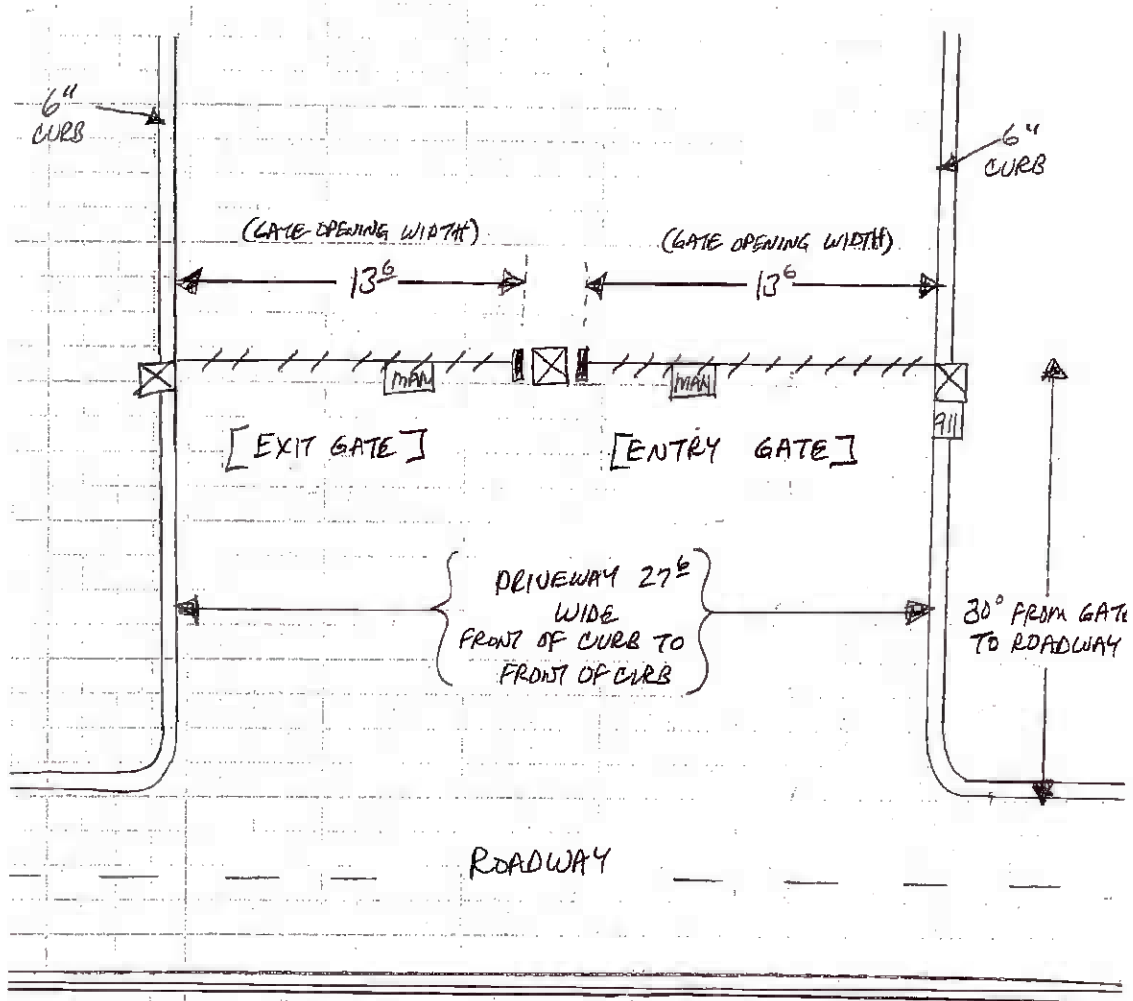 6"
CURB
6"
CURB
(GATE OPENING WIDTH)
(GATE OPENING WIDTH)
13⁶
13⁶
MAN
MAN
911
[EXIT GATE]
[ENTRY GATE]
DRIVEWAY 27⁶
WIDE
FRONT OF CURB TO
FRONT OF CURB
30⁰ FROM GATE
TO ROADWAY
ROADWAY